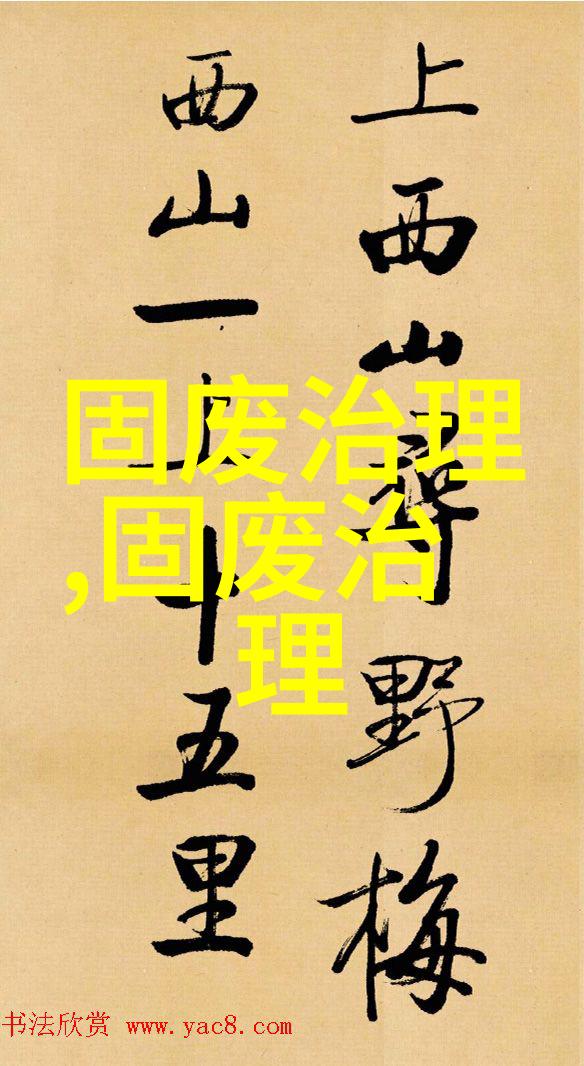 上西山尋野梅
西山一上十五里
固废治理
,固废治
理
书法欣赏 www.yac8.com